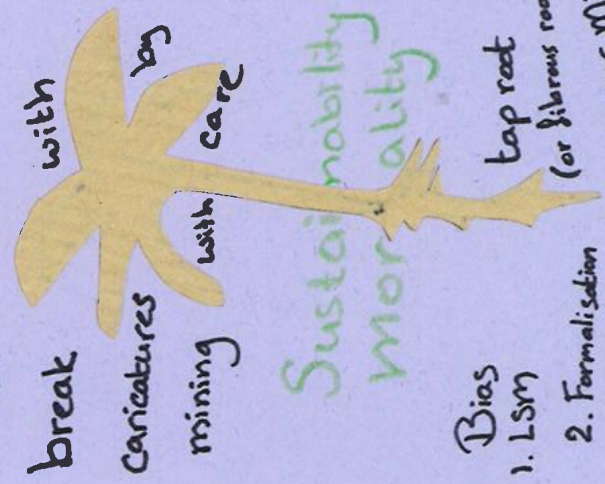 break with
caricatures by
mining with care
Sustainability
mor ality
Bias
1. LSM
2. Formalisation
tap root
(or fibrous roo